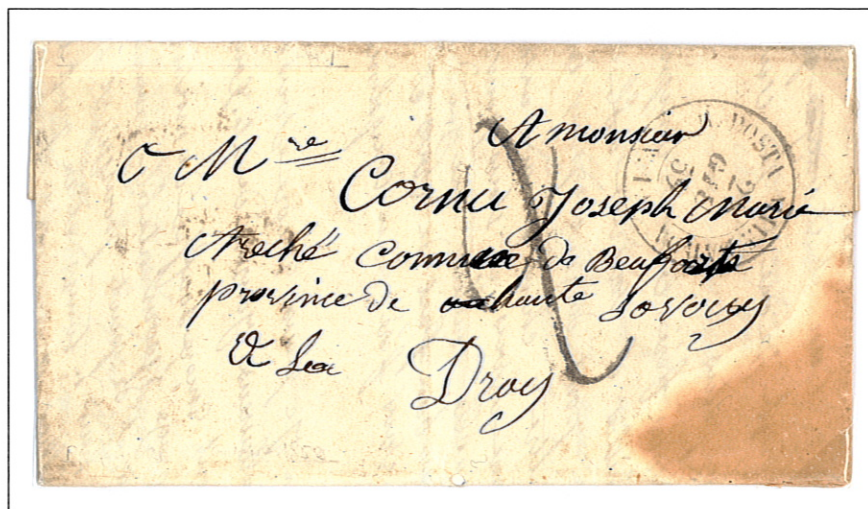 A monsieur
A Mre
Cornu Joseph Marie
Areché Commune de Beufort
province de haute Sovoiy
& La Droy
POSTA
GIU